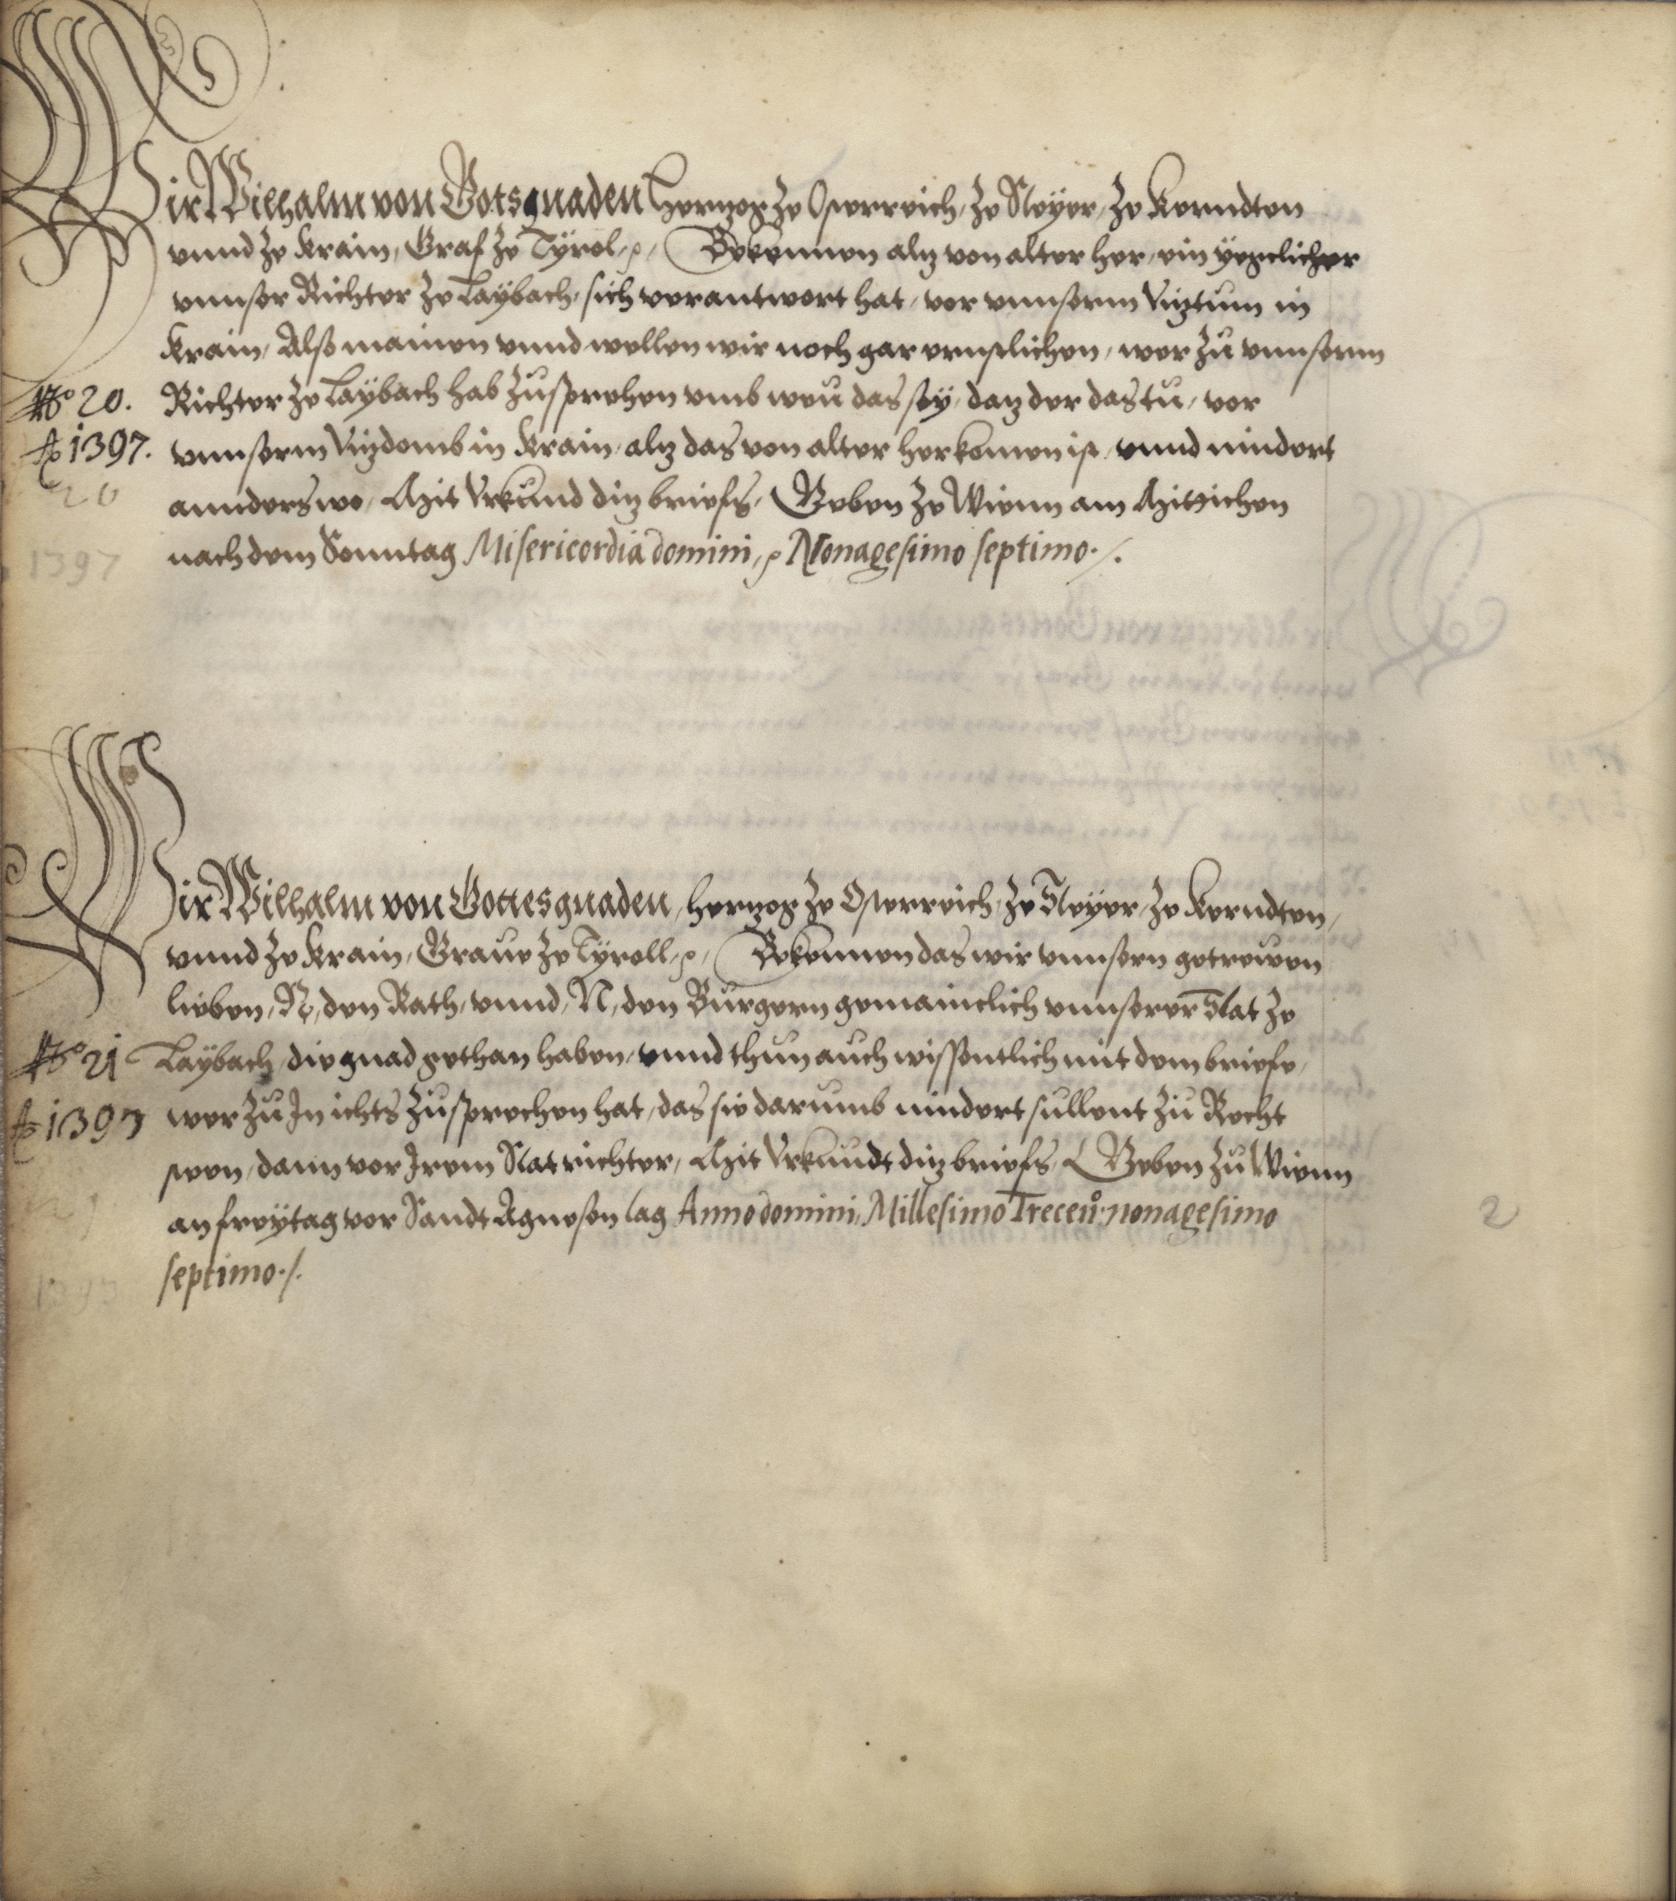 Wir Wilhalm von Gots gnaden Hertzog ze Osterreich, ze Steyer, ze Kerndten
vnnd ze Krain, Graf ze Tÿrol, Bekennen alz von alter her, ein yegclicher
vnnser Richter ze Laÿbach, sich verantwort hat, vor vnnserm Vitztum in
Krain, Also mainen vnnd wellen wir noch gar ernstlichen, wer zu vnnserm
No 20. Richter ze Laÿbach hab zusprehen vmb weu das seÿ, daz der das tu, vor
Ao 1397. vnnserm Vitzdomb in Krain, alz das von alter herkomen ist, vnnd nindert
20
annderswo, Mit Vrkund ditz briefs, Geben ze Wienn am Mittichen
1397 nach dem Sonntag Misericordia domini, Nonagesimo septimo ./.
Wir Wilhalm von Gottes gnaden, Hertzog ze Osterreich, ze Steyer, ze Kerndten,
vnnd ze Krain, Graue ze Tÿroll, Bekennen das wir vnnsern getrewen
lieben, N, den Rath, vnnd, N, den Burgern gemainclich vnnserer Stat ze
No 21 Laÿbach, die gnad gethan haben, vnnd thun auch wissentlich mit dem briefe,
Ao 1397 wer zu In ichts zusprechen hat, das sie darumb nindert sullent zu Recht
steen, dann vor Irem Statrichter, Mit Vrkundt ditz briefs, Geben zu Wienn
an freÿtag vor Sandt Agnesen tag Anno domini, Millesimo Trecen° nonagesimo
2
septimo ./.